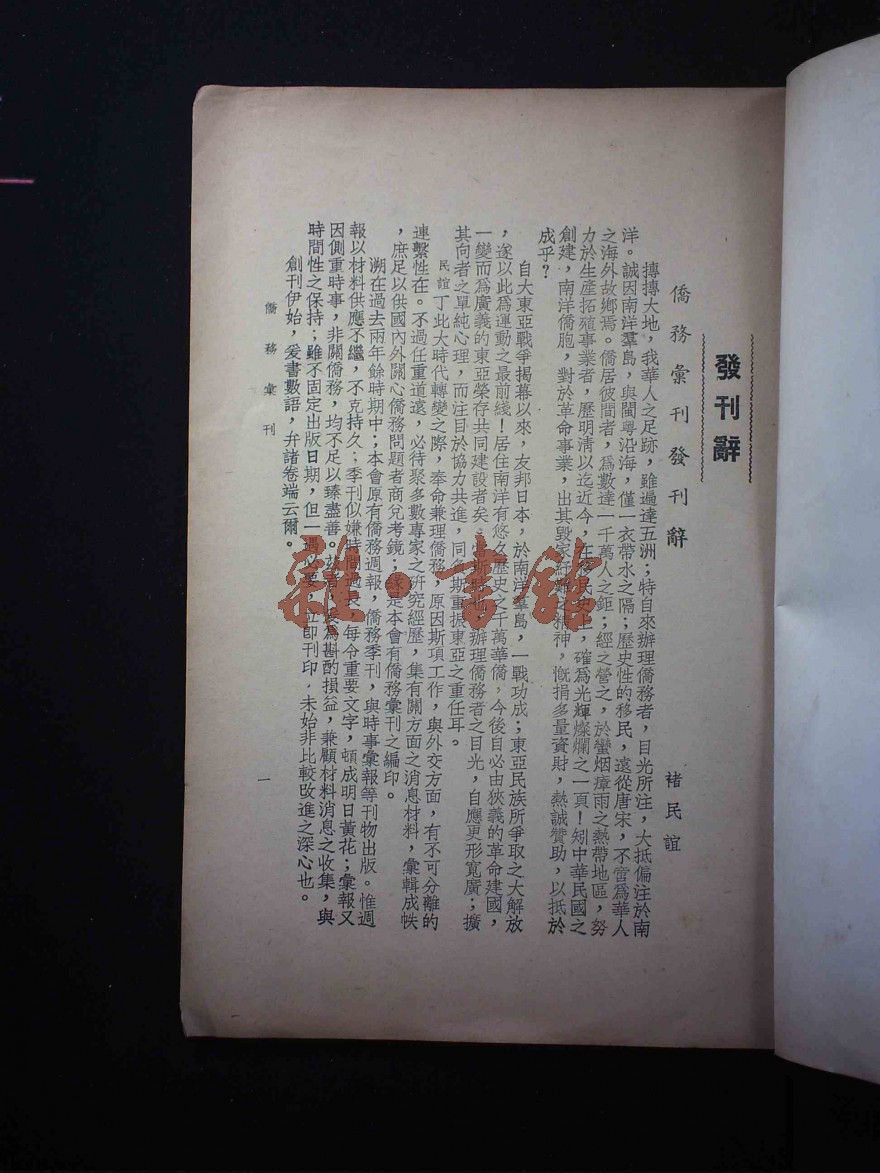 發刊辭
僑務彙刊發刊辭
褚民誼
摶摶大地，我華人之足跡，雖遍達五洲；特自來辦理僑務者，目光所注，大抵偏注於南
洋。誠因南洋羣島，與閩粵沿海，僅一衣帶水之隔；歷史性的移民，遠從唐宋，不啻為華人
之海外故鄉焉。僑居彼間者，為數達一千萬人之鉅；經之營之，於蠻烟瘴雨之熱帶地區，努
力於生產拓殖事業者，歷明清以迄近今，在移民史上，確為光輝燦爛之一頁！矧中華民國之
創建，南洋僑胞，對於革命事業，出其毀家紓難之精神，慨捐多量資財，熱誠贊助，以抵於
成乎？
自大東亞戰爭揭幕以來，友邦日本，於南洋羣島，一戰功成；東亞民族所爭取之大解放
，遂以此為運動之最前綫！居住南洋有悠久歷史之千萬華僑，今後自必由狹義的革命建國，
一變而為廣義的東亞榮存共同建設者矣。當斯 辦理僑務者之目光，自應更形寬廣；擴
其向者之單純心理，而注目於協力共進，同負斯重振東亞之重任耳。
民誼丁此大時代轉變之際，奉命兼理僑務，原因斯項工作，與外交方面，有不可分離的
連繫性在。不過任重道遠，必待聚多數專家之研究經歷，集有關方面之消息材料，彙輯成帙
，庶足以供國內外關心僑務問題者商兌考鏡；遂是本會有僑務彙刊之編印。
溯在過去兩年餘時期中；本會原有僑務週報，僑務季刊，與時事彙報等刊物出版。惟週
報以材料供應不繼，不克持久；季刊似嫌時間過長，每令重要文字，頓成明日黃花；彙報又
因側重時事，非關僑務，均不足以臻盡善。茲者， 為斟酌損益，兼顧材料消息之收集，與
時間性之保持；雖不固定出版日期，但一遇必要，立即刊印，未始非比較改進之深心也。
創刊伊始，爰書數語，弁諸卷端云爾。
僑務彙刊
一
雜·書館